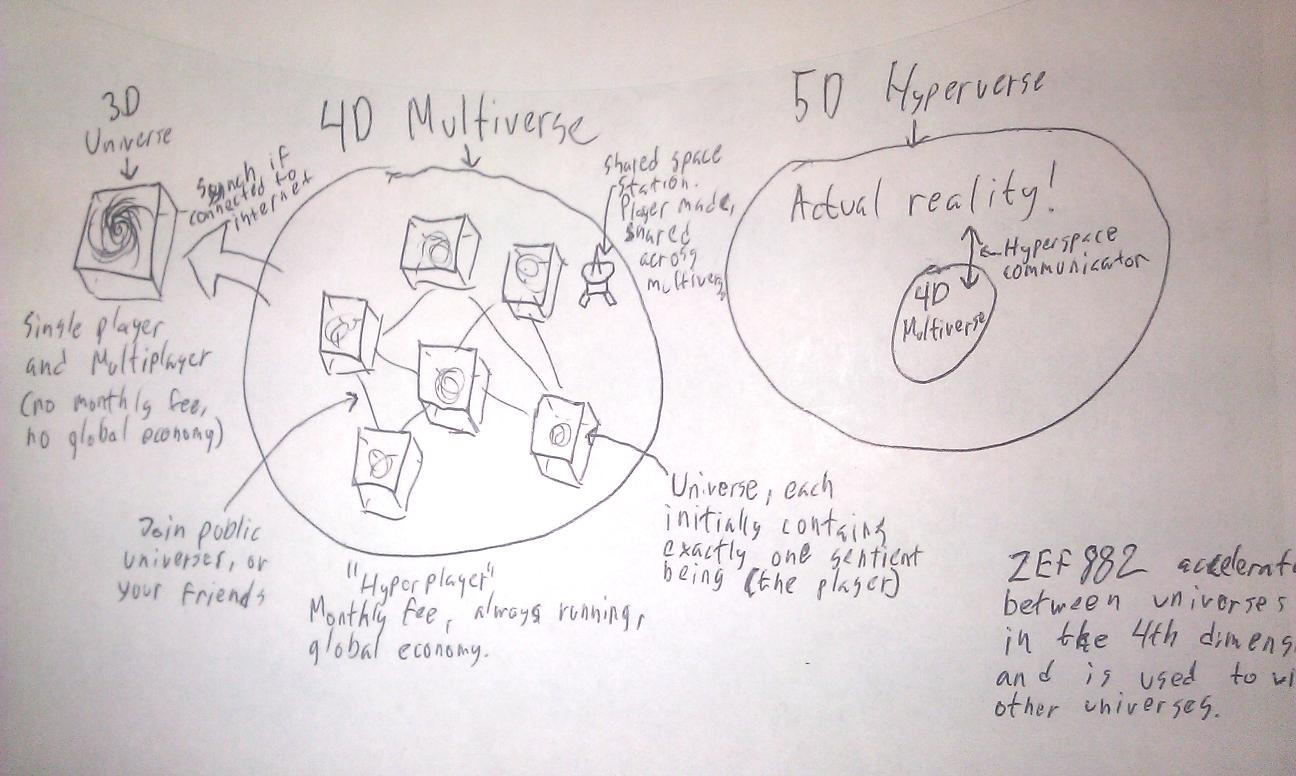 3D
Universe
Synch if
connected to
internet
Single player
and Multiplayer
(no monthly fee,
no global economy)
4D Multiverse
Shared space
station.
Player made,
shared
across
multiverse
Join public
universes, or
your friends
"Hyperplayer"
Monthly fee, always running,
global economy.
Universe, each
initially contains
exactly one sentient
being (the player)
5D Hyperverse
Actual reality!
Hyperspace
communicator
4D
Multiverse
ZEF882 accelerat
between universes
in the 4th dimens
and is used to
other universes.